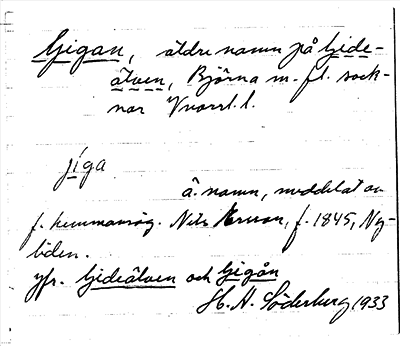 Gigan, äldre namn på Gide-
älven, Björna m. fl. sock-
nar Vnorrl. l.
jiga
ä. namn, meddelat av
f. hemmansäg. Nils Ersson, f. 1845, Ny-
liden.
jfr. Gideälven och Gigån
H. A. Söderberg 1933